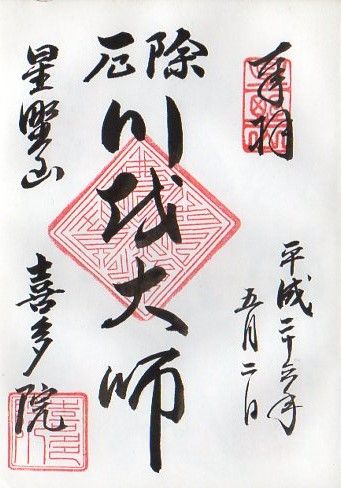 奉拝
平成二十六年
五月二日
厄除
川越大師
星野山
喜多院